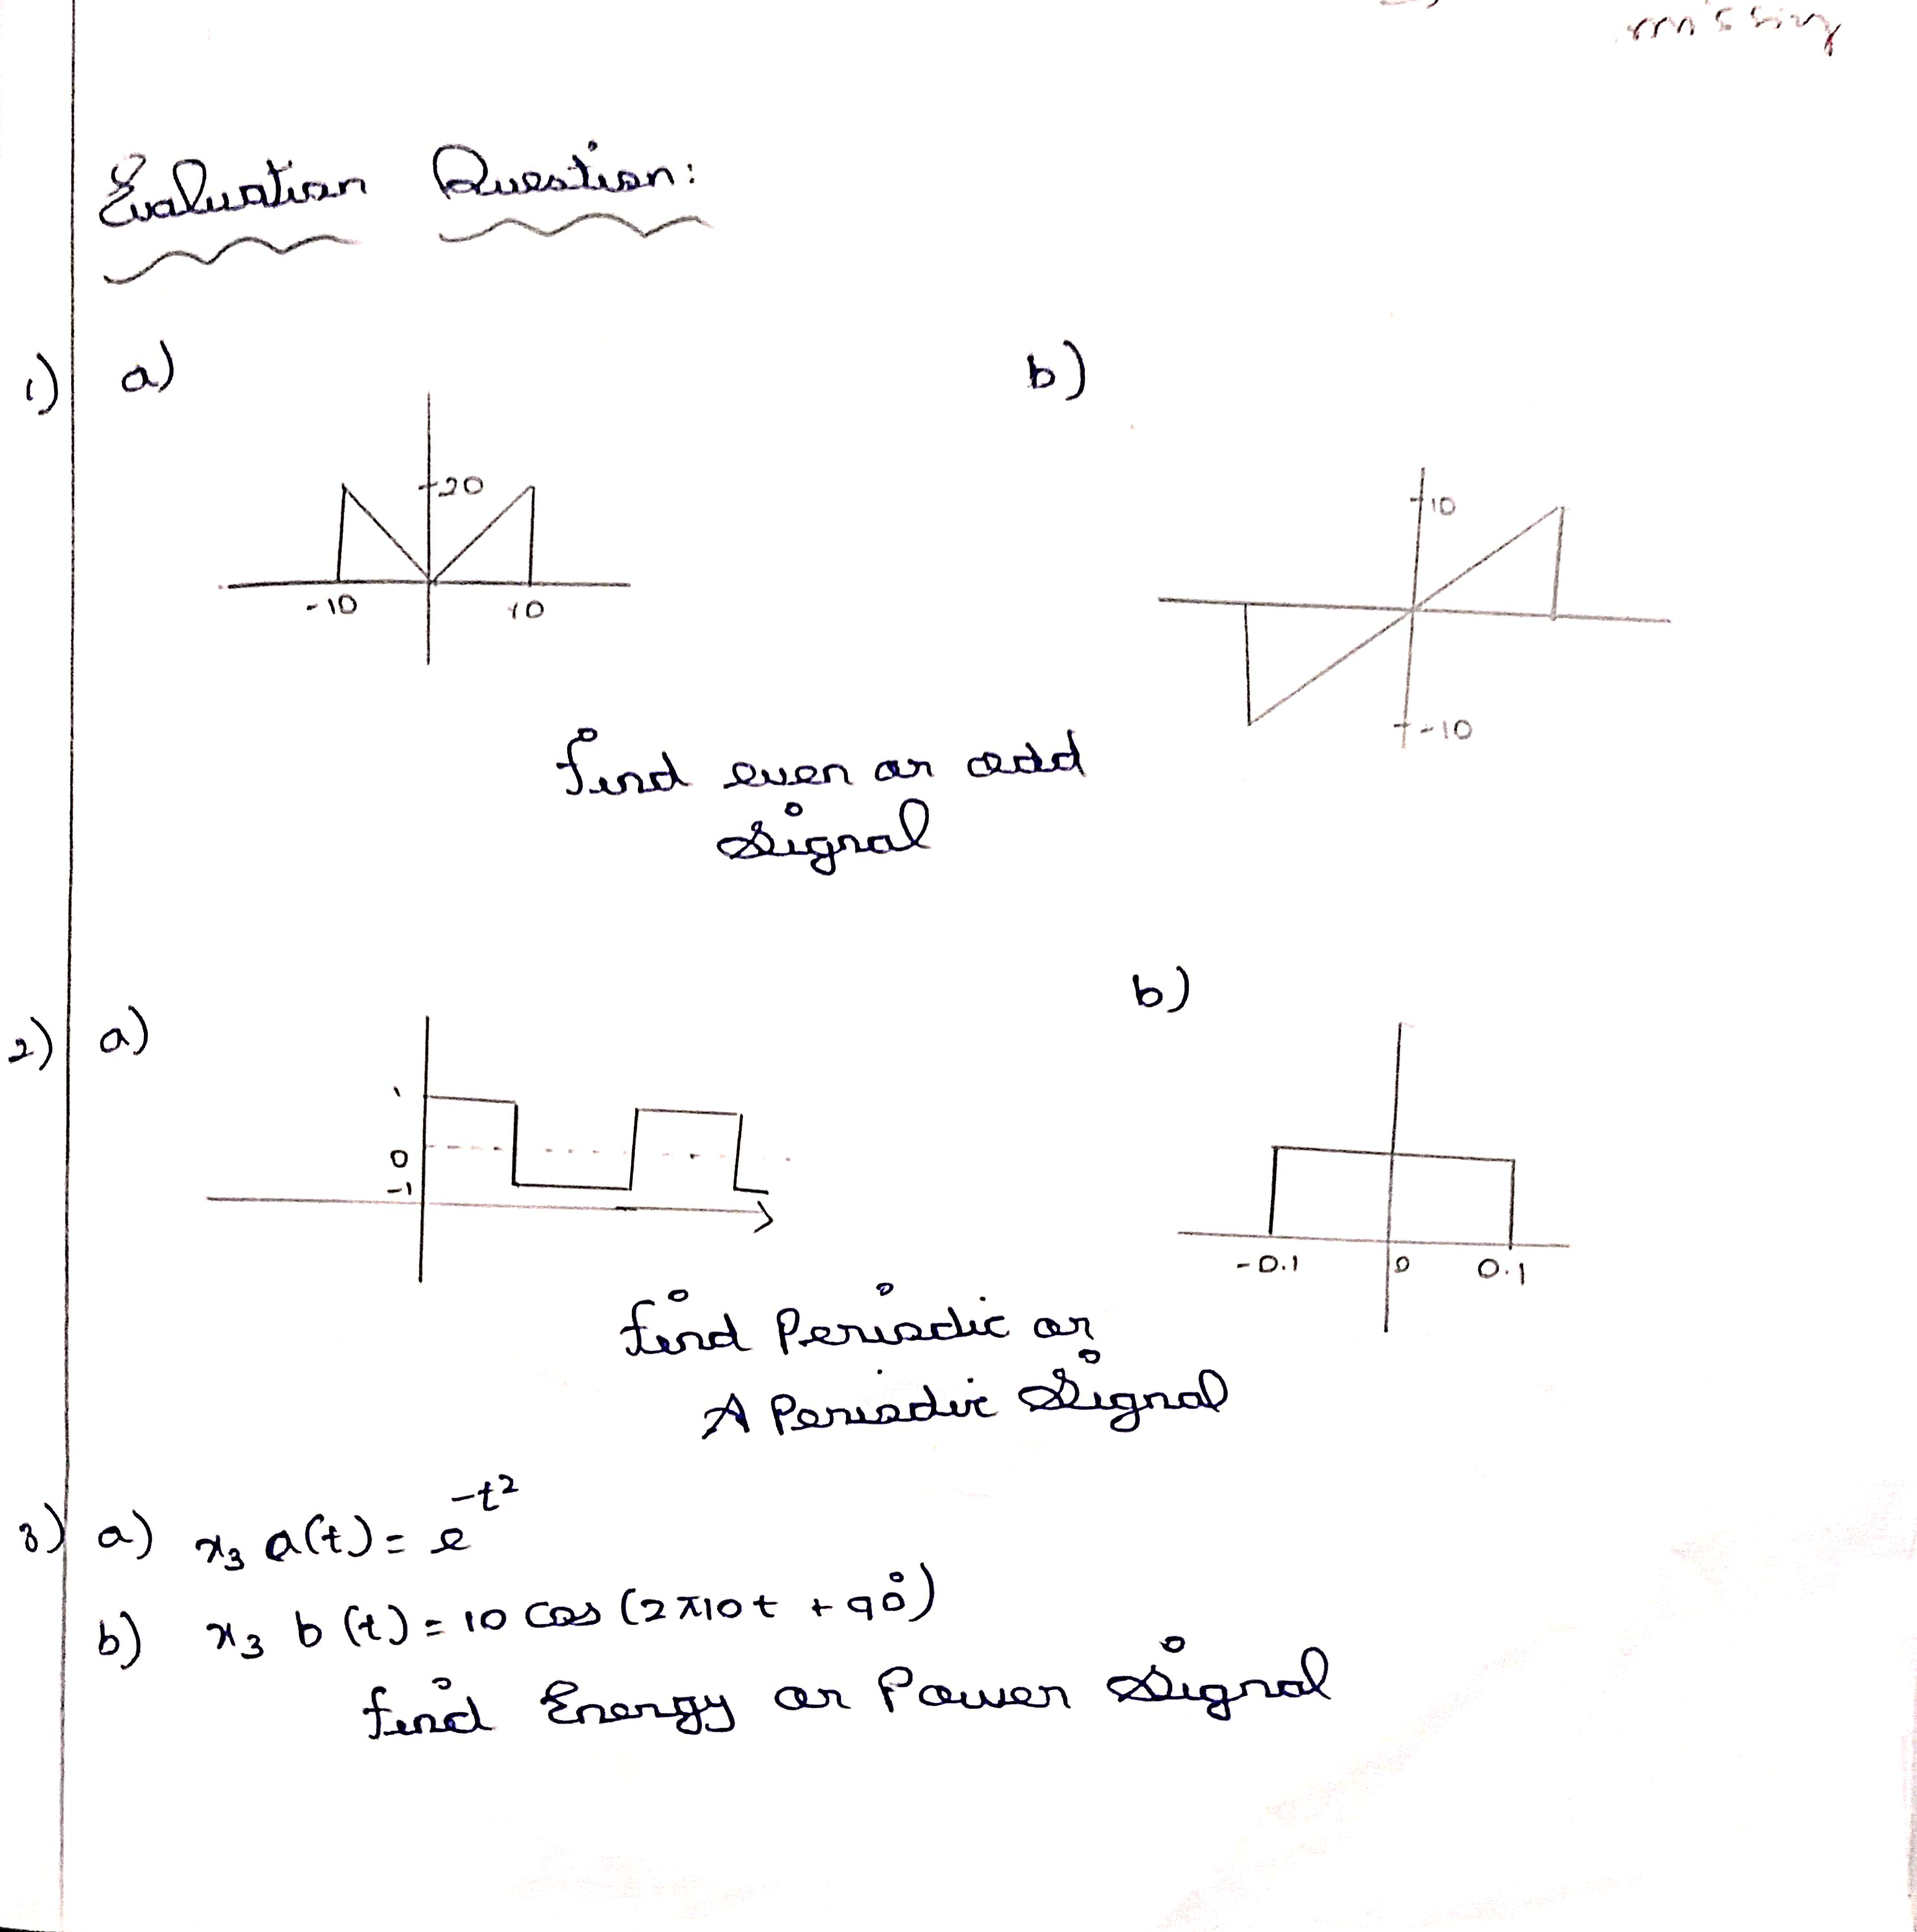 missing
Evaluation Question:
1) a) b)
20
-10 10
10
-10
find even or odd
signal
b)
2) a)
1
0
-1
-0.1 0 0.1
find Periodic or
A Periodic Signal
3) a) x₃ a(t) = e^-t²
b) x₃ b (t) = 10 cos (2π10t + 90°)
find Energy or Power Signal